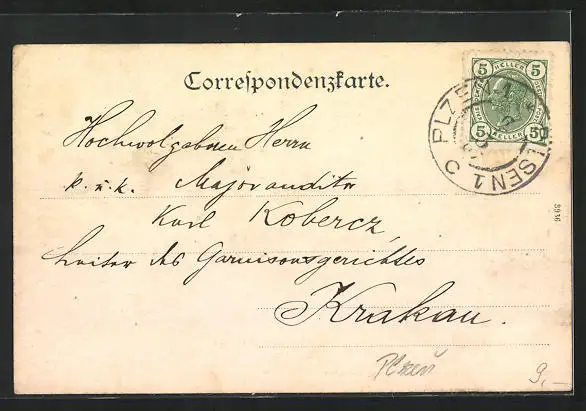 Correspondenzkarte.
5 HELLER 5
5 HELLER 5
PLZEŇ 1 PILSEN 1 C
Hochwolgeboren Herrn
k. u. k. Majorauditor
Karl Kobercz,
Leiter des Garnisonsgerichtes
Krakau.
3936
Plzeň
9,-